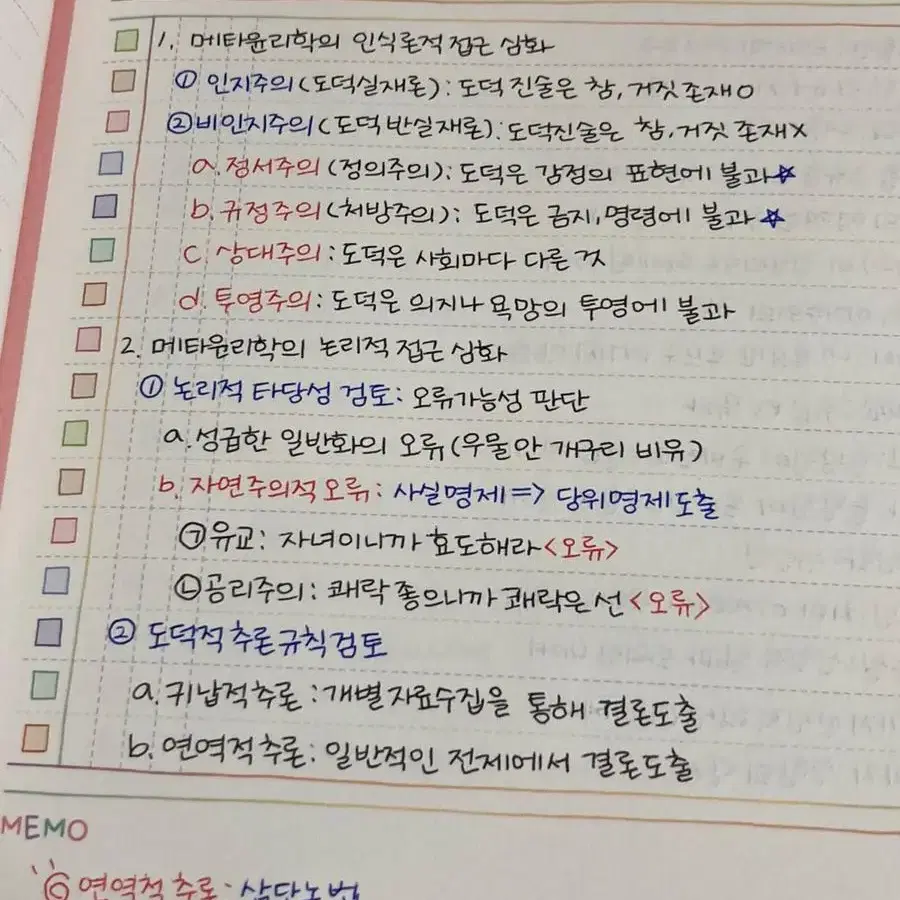 1. 메타윤리학의 인식론적 접근 심화
① 인지주의(도덕실재론): 도덕 진술은 참, 거짓 존재O
②비인지주의(도덕 반실재론): 도덕진술은 참, 거짓 존재X
a. 정서주의 (정의주의): 도덕은 감정의 표현에 불과☆
b. 규정주의(처방주의): 도덕은 금지, 명령에 불과☆
c. 상대주의: 도덕은 사회마다 다른 것
d. 투영주의: 도덕은 의지나 욕망의 투영에 불과
2. 메타윤리학의 논리적 접근 심화
① 논리적 타당성 검토: 오류가능성 판단
a. 성급한 일반화의 오류(우물안 개구리 비유)
b. 자연주의적 오류: 사실명제=> 당위명제도출
㉠유교: 자녀이니까 효도해라<오류>
㉡공리주의: 쾌락 좋으니까 쾌락은 선<오류>
② 도덕적 추론규칙검토
a. 귀납적추론: 개별자료수집을 통해 결론도출
b. 연역적추론: 일반적인 전제에서 결론도출
MEMO
연역적 추론: 삼단논법